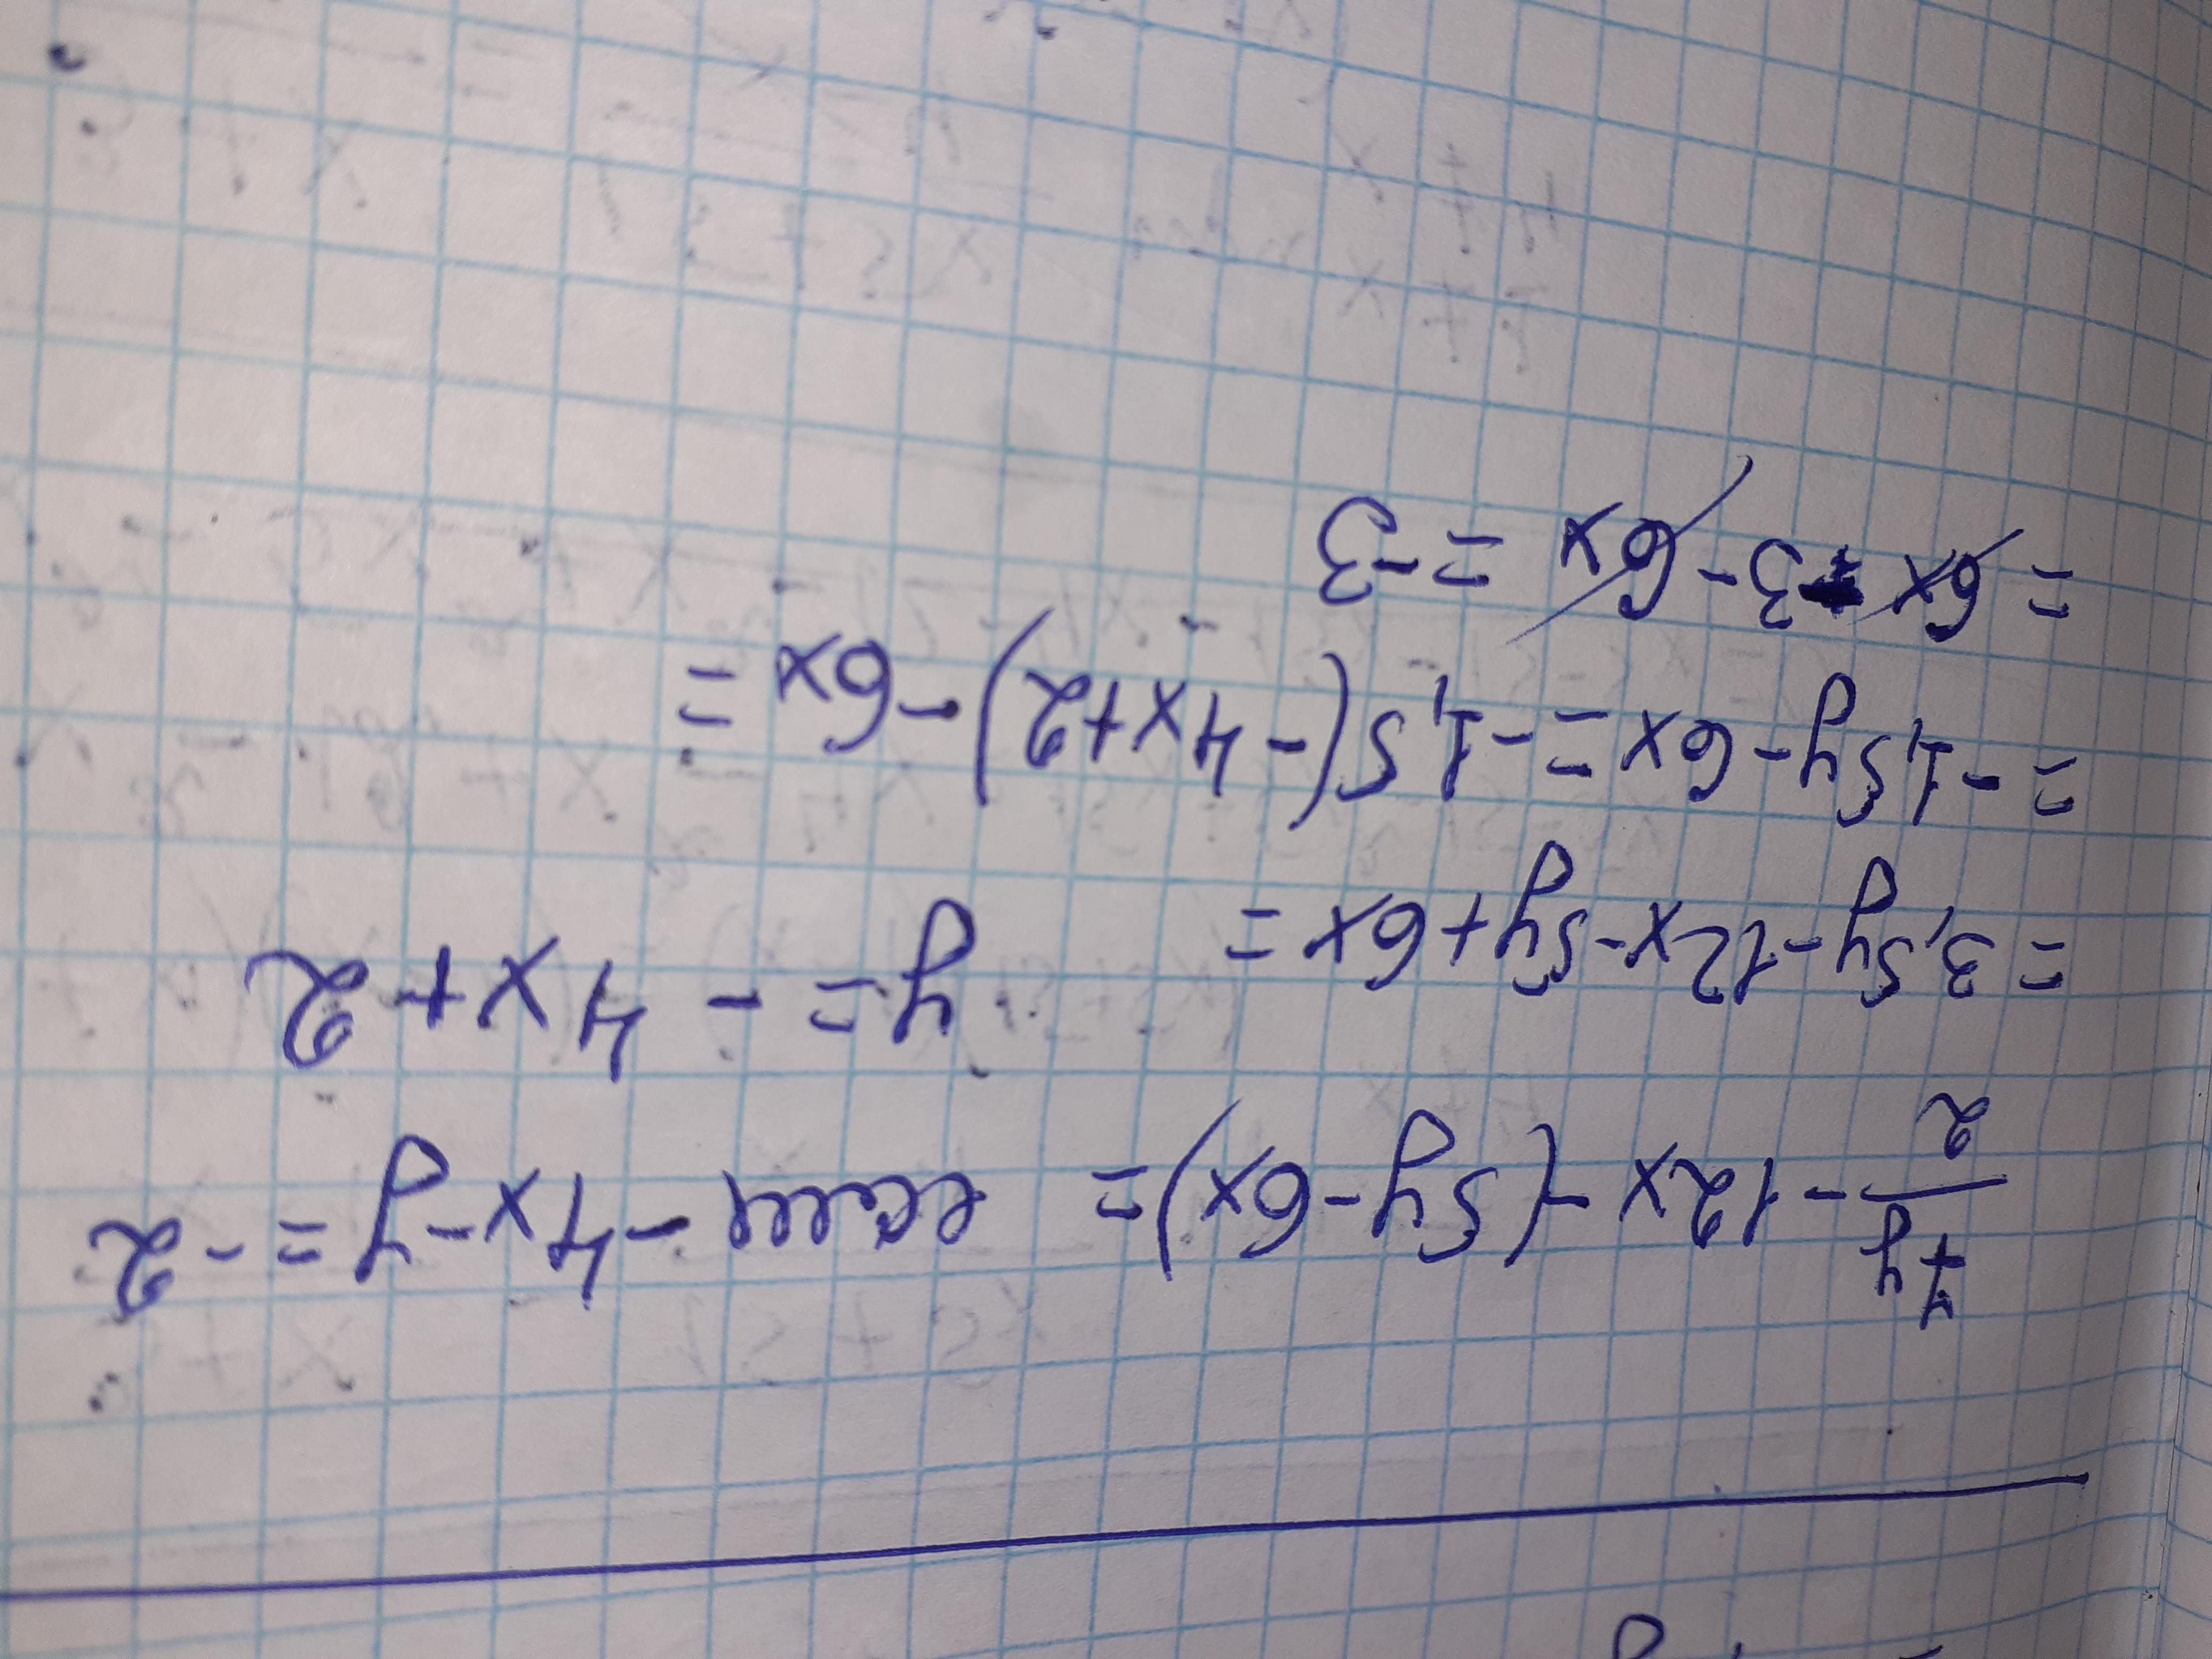 7y/2 - 12x - (5y - 6x) = если -4x - y = -2
= 3,5y - 12x - 5y + 6x = y = -4x + 2
= -1,5y - 6x = -1,5(-4x+2) - 6x =
= 6x - 3 - 6x = -3